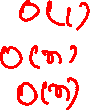 O(1)
O(n)
O(n)